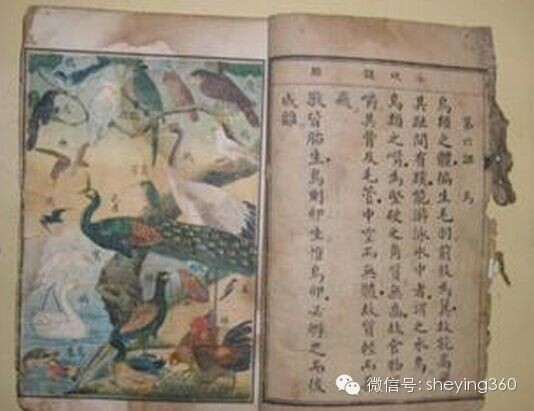 第六課 鳥
鳥類之體徧生毛羽前肢為翼故能高
其趾間有蹼能游泳水中者謂之水鳥
鳥類之嘴為堅硬之角質無齒故食物
嚼其骨及毛管中空而無髓故質輕而
飛
獸皆胎生鳥則卵生惟鳥卵必孵之而後
成雛
微信号: sheying360